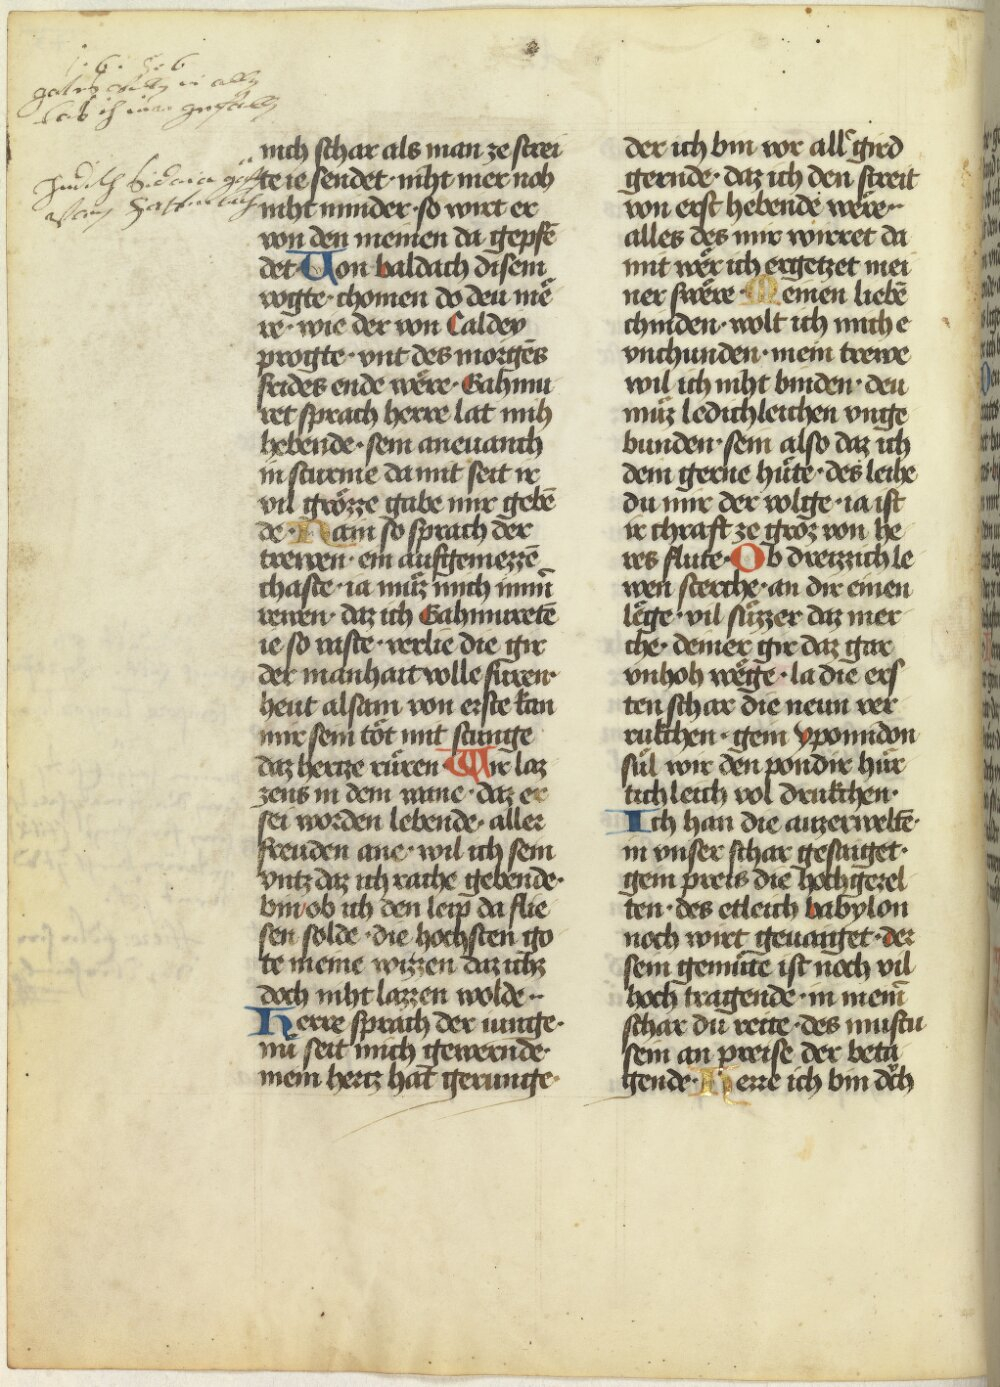 nich schar als man ze strei
te ie sendet · niht mer noh
niht minder · so wirt er
von den meinen da gepfē
det · Von baldach disem
vogte · chomen do deu mē
re · wie der von Caldey
progte · vnt des morgēs
freides ende wëre · Gahmu
ret sprach herre lat mih
hebende · sein aneuanch
in sturme da mit seit ir
vil grözze gabe mir gebē
de · Nain so sprach der
trewen · ein aufgemezzē
chaste · ia müz mich imm̄
rewen · daz ich Gahmuretē
ie so vaste · verlie die gir
der manhait volle furen ·
heut alsam von erste kan
mir sein töt mit stunge
daz hertze rüren · Wir laz
zens in dem wane · daz er
sei worden lebende · aller
freuden ane · wil ich sein
vntz daz ich rache gebende ·
bin ob ich den leip da flie
sen solde · die hochsten go
te meine wizzen daz ichz
doch niht lazzen wolde ··
Herre sprach der iunge ·
nu seit mich gewernde ·
mein hertz hat gerunge ·
der ich bin vor allᵉ gird
gernde · daz ich den streit
von erst hebende were ··
alles des mir wirret da
mit wër ich ergetzet mei
ner swëre · Meinen liebē
chinden · wolt ich mich e
vnchunden · mein trewe
wil ich niht binden · deu
müz ledichleichen vnge
bunden · sein also daz ich
dem gerne hüte · des leihe
du mir der volge · ia ist
ir chraft ze groz von he
res flute · Ob dreizzich le
wen sterche · an dir einen
lëge · vil süzzer daz mer
che · deiner gir daz gar
vnhoh wëge · la die ers
ten schar die neun ver
rukchen · gein yponidon
sül wir den pondir hür
tichleich vol drukchen ·
Ich han die auzerweltē ·
in vnser schar gesaiget ·
gein preis die hochgezel
ten · des etleich babylon
noch wirt geuaiget · der
sein gemüte ist noch vil
hoch tragende · in mein̄
schar du reite · des mustu
sein an preise der beta
gende · Herre ich bin doch